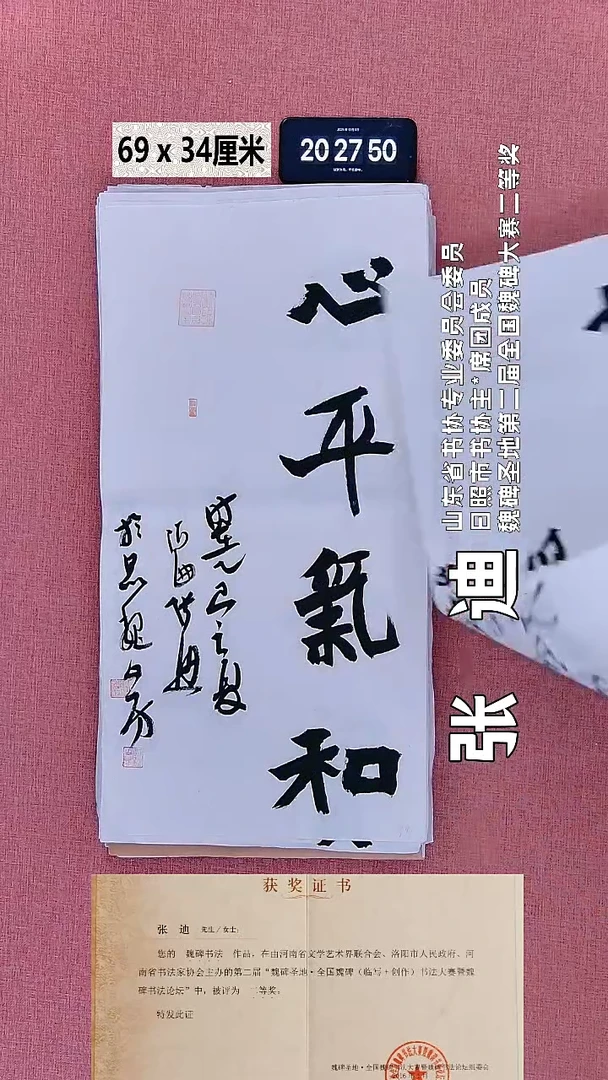 69 x 34厘米
20 27 50
心平氣和
巳之夏
山东省书协专业委员会委员
日照市书协主*席团成员
魏碑圣地第二届全国魏碑大赛二等奖
张 迪
获奖证书
张 迪 先生/女士:
您的 魏碑书法 作品，在由河南省文学艺术界联合会、洛阳市人民政府、河
南省书法家协会主办的第二届“魏碑圣地·全国魏碑（临写+创作）书法大赛暨魏
碑书法论坛”中，被评为 二等奖。
特发此证
魏碑圣地·全国魏碑 法论坛组委会